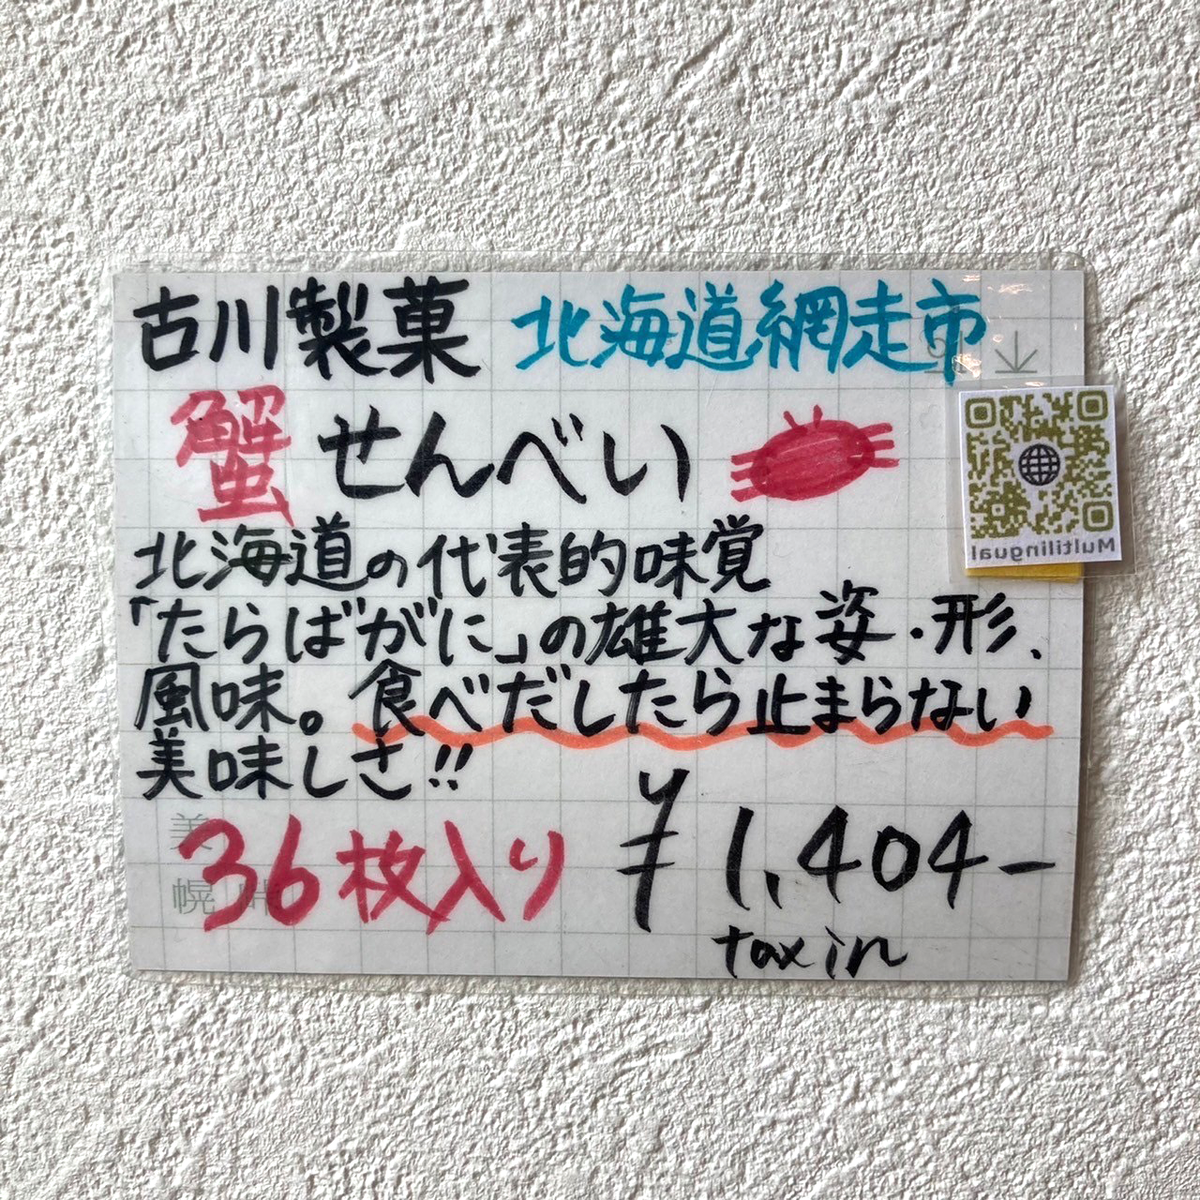 古川製菓 北海道網走市
蟹せんべい
Multilingual
北海道の代表的味覚
「たらばがに」の雄大な姿・形、
風味。食べだしたら止まらない
美味しさ!!
36枚入り ¥1,404-
tax in